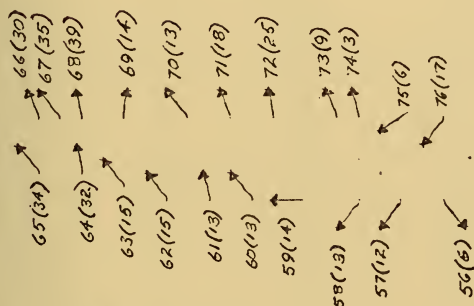 66(30)
67(35)
68(39)
69(14)
70(13)
71(18)
72(25)
73(9)
74(3)
75(6)
76(17)
65(34)
64(32)
63(15)
62(15)
61(13)
60(13)
59(14)
58(13)
57(12)
56(6)